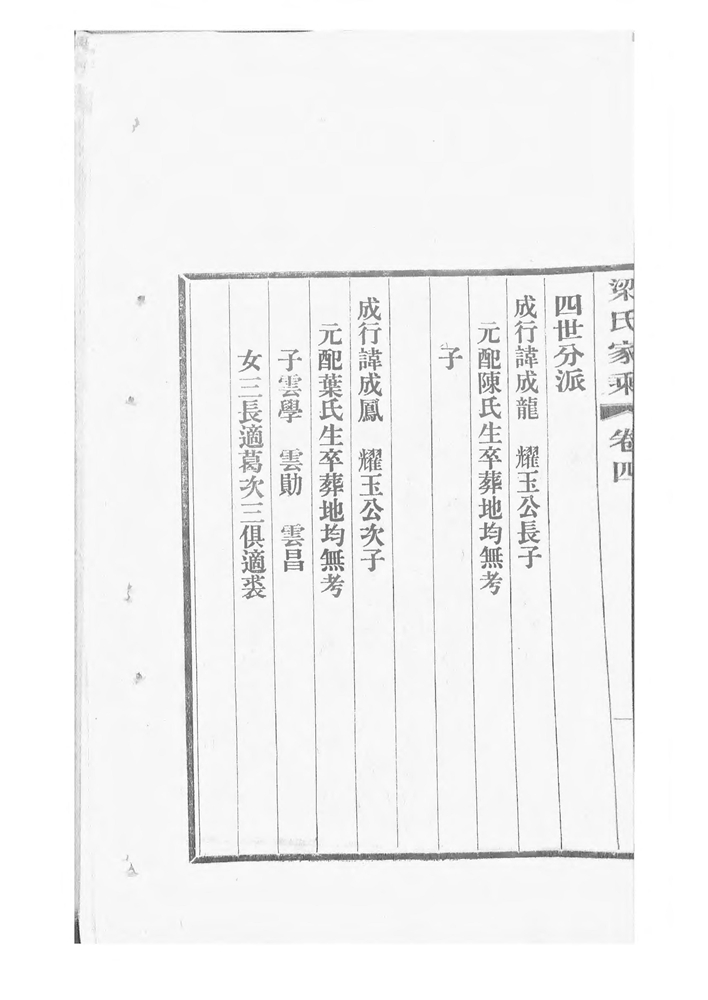 梁氏家乘 卷四
一
四世分派
成行諱成龍 耀玉公長子
元配陳氏生卒葬地均無考
子
成行諱成鳳 耀玉公次子
元配葉氏生卒葬地均無考
子雲學 雲勛 雲昌
女三長適葛次三俱適裘